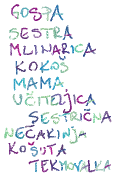 GOSPA
SESTRA
MLINARICA
KOKOŠ
MAMA
UČITELJICA
SESTRIČNA
NEČAKINJA
KOŠUTA
TEKMOVALKA